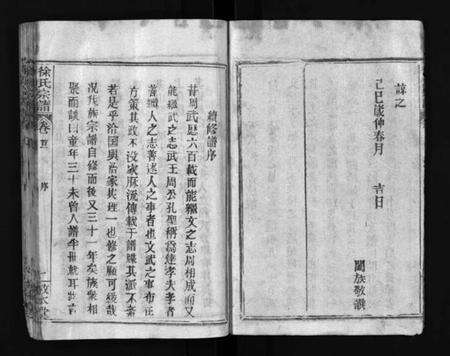 諒之
己巳歲仲春月 吉日
闔族敬譔
續修譜序
昔周武歷六百載而能繼文之志周相成而又
能繼武之志武王周公孔聖稱爲達孝夫孝者
善繼人之志善述人之事者也文武之事布在
方策其政不没宗派流傳載于譜牒其派不紊
若是乎治國與治家其理一也修之顧可緩哉
况我族宗譜自修而後又三十一年矣族衆相
聚而談曰童年三十未曾入譜
徐氏宗譜 卷首 序